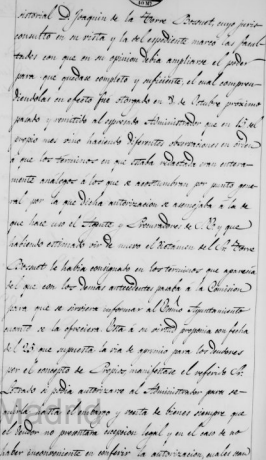 sistorial D. Joaquin de la Torre Bosuet, cuyo juris
consulto en su vista y la del espediente marcó las facul-
tades con que en su opinion debia ampliarse el poder
para que quedase completo y suficiente; el cual compren-
diendolas en efecto fué otorgado en 3 de Octubre próximo
pasado y remitido al espresado Administrador que en 15 del
propio mes vino haciendo diferentes observaciones en orden
á que los términos en que estaba redactada eran entera-
mente análogos á los que se acostumbran por punto gene-
ral por la que dicha autorizacion se asemejaba á la de
que hace uso el Agente y Procuradores de S. E. y que
habiendo estimado oir de nuevo el dictamen del Sr. Torre
Bosuet le habia consignado en los terminos que aparecia
del que con los demás antecedentes pasaba á la Comision
para que se sirviera informar al Exmo. Ayuntamiento
cuanto se la ofreciera. Esta á su virtud proponia con fecha
del 23 que supuesta la via de apremio para los deudores
por el concepto de Propios manifestase el referido Sr.
Letrado si podia autorizarse al Administrador para se-
guirla hasta el embargo y venta de bienes siempre que
el deudor no presentara escepcion legal y en el caso de no
haber inconveniente en conferir la autorizacion, cuales eran